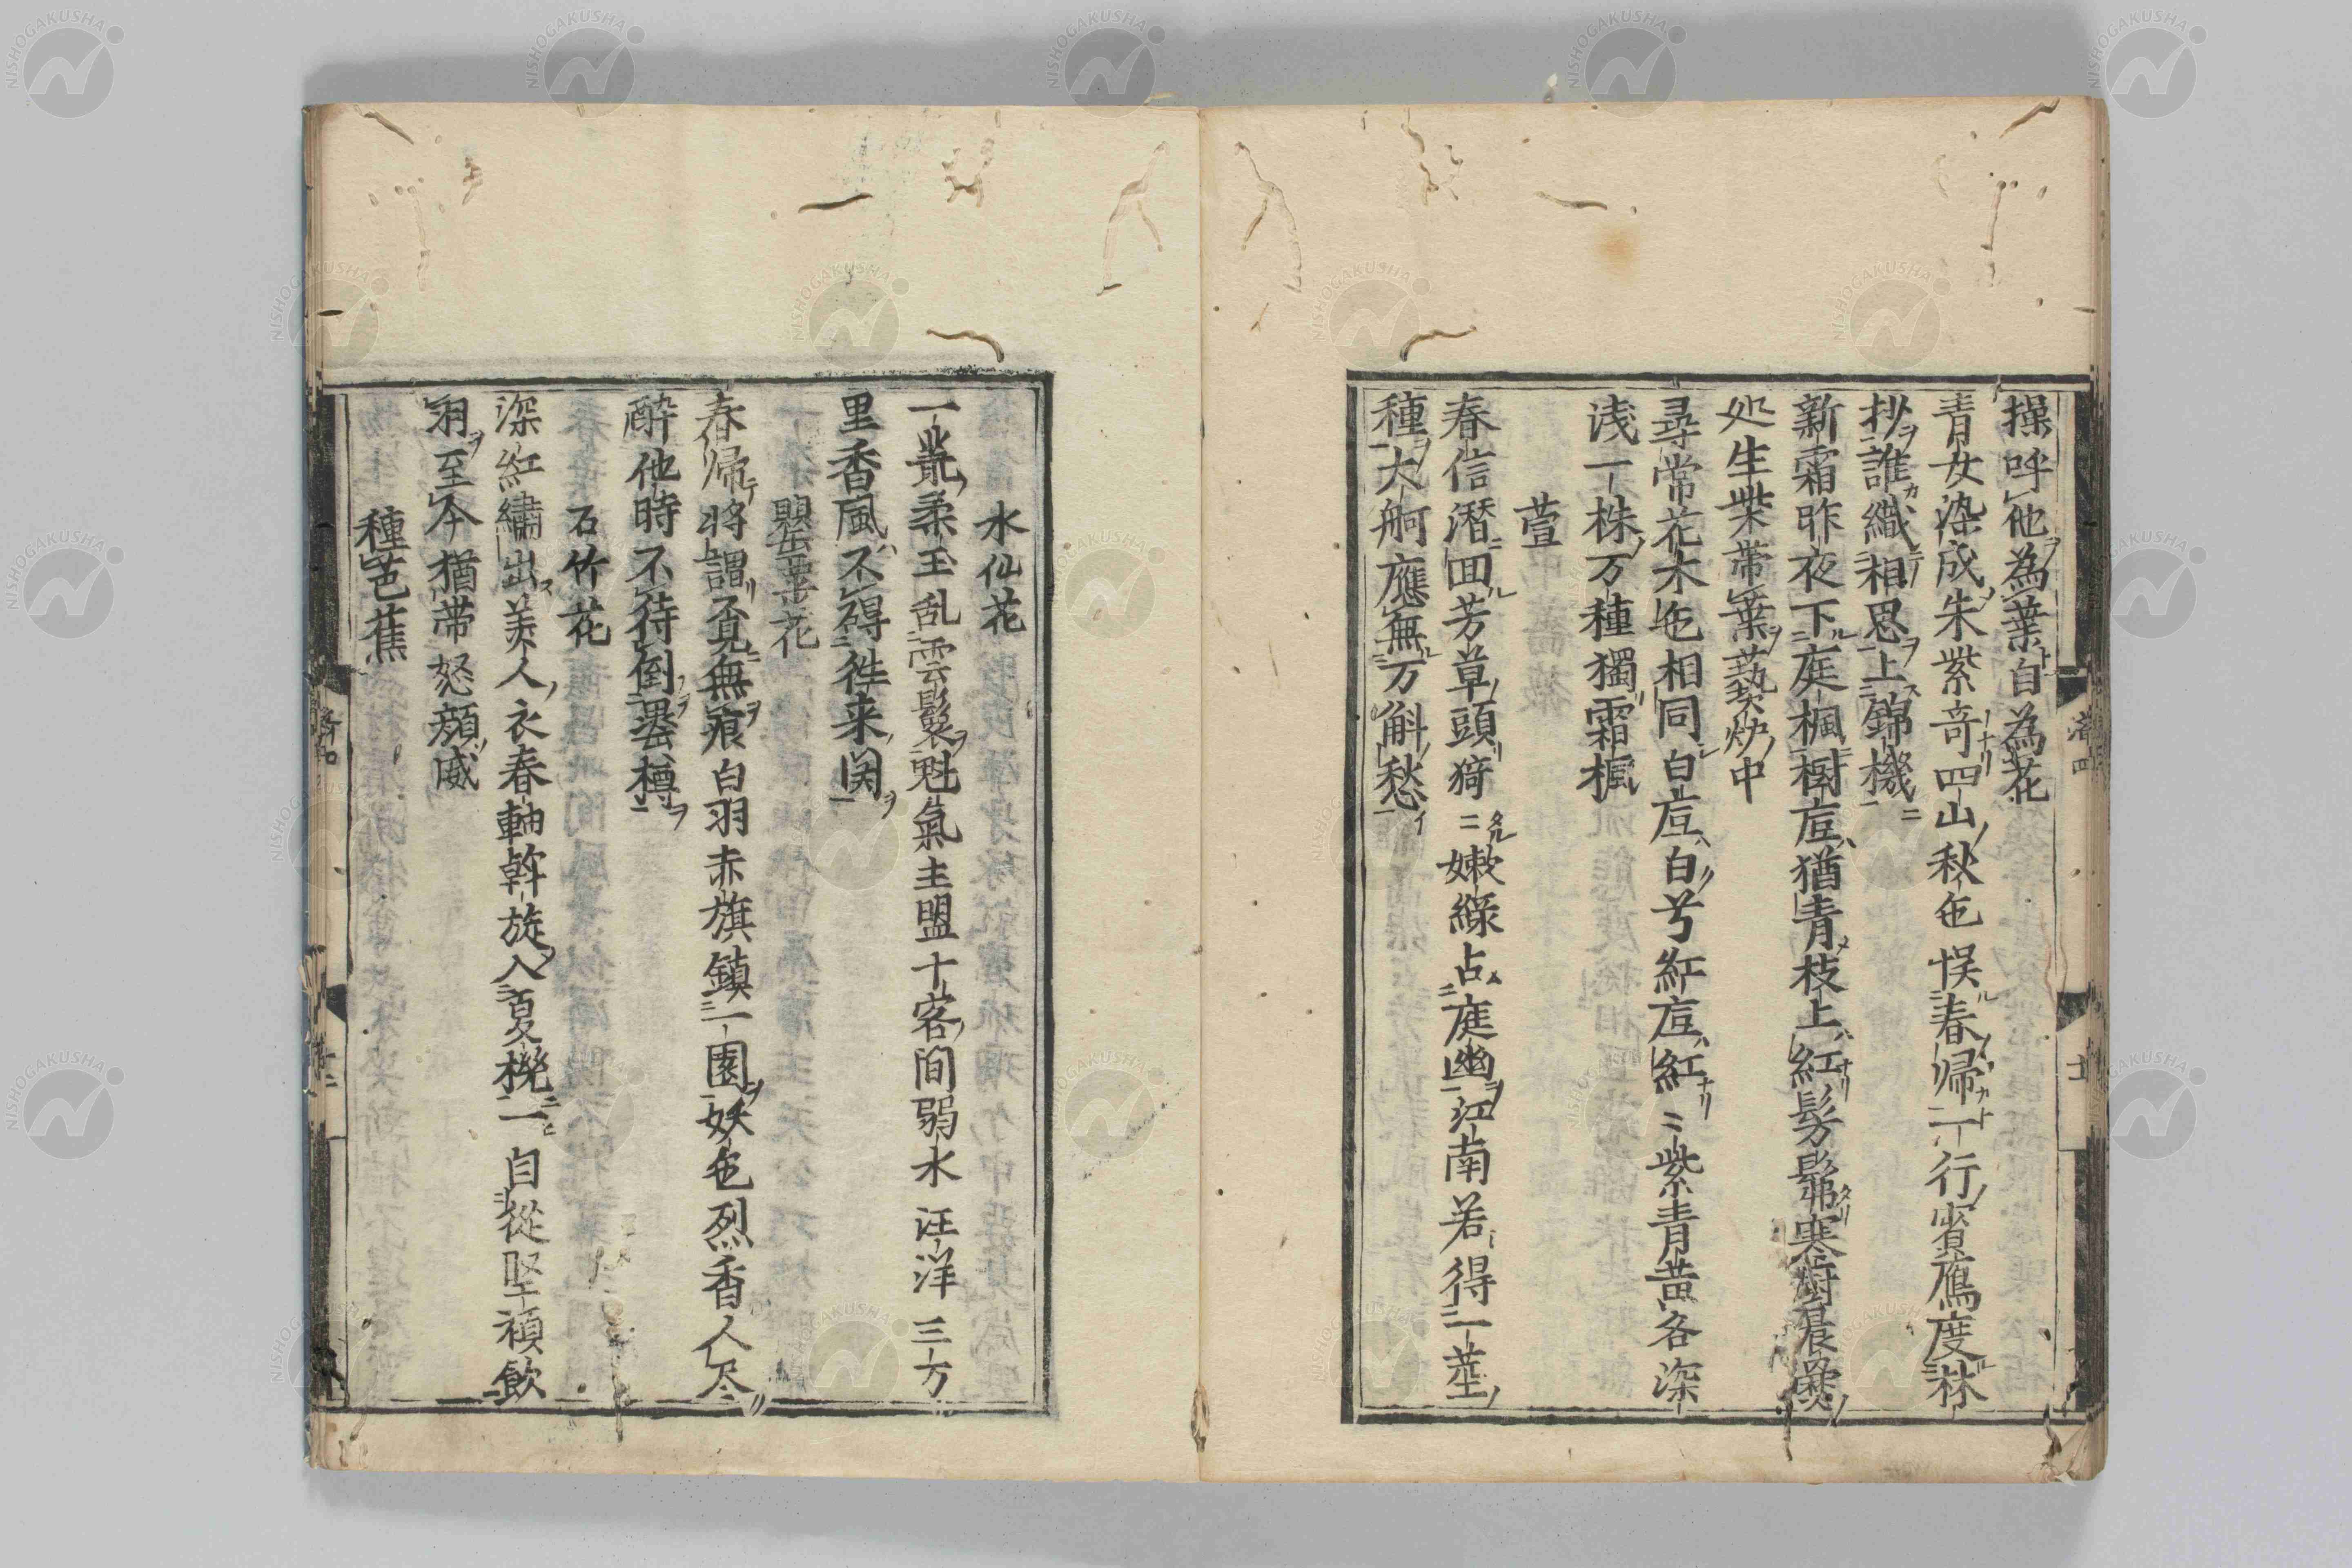 操呼他為葉自為花
青女染成朱紫奇四山秋色悮春帰一行賓鴈度林
抄誰織相思上錦機
新霜昨夜下庭楓樹庭猶青枝上紅髣髴寒厨晨爨
処生柴帯葉爇炉中
尋常花木色相同白庭白兮紅庭紅〻紫青黄各深
浅一株万種獨霜楓
萱
春信潜回芳草頭猗〻嫩緑占庭幽江南若得一莖
種大舸應無万斛愁
水仙花
一叢柔玉乱雲鬟魁氣主盟十客間弱水汪洋三万
里香風不碍徃来関
罌粟花
春帰將謂覓無痕白羽赤旗鎮一園妖色烈香人尽
酔他時不待倒罌樽
石竹花
深紅繡出美人衣春軸斡旋入夏機一自從堅禎飲
羽至今猶帯怒顔威
種芭蕉
NISHOGAKUSHA